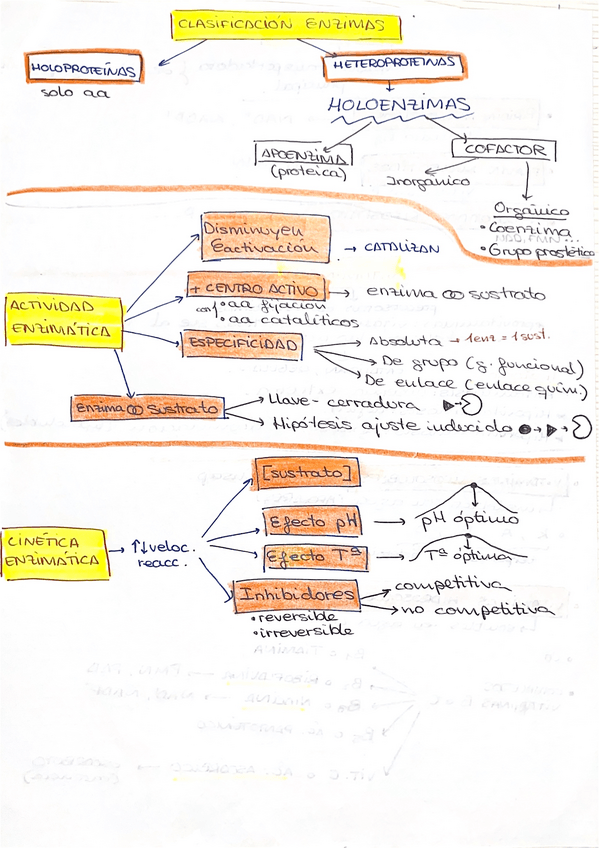 CLASIFICACIÓN ENZIMAS
HOLOPROTEÍNAS
HETEROPROTEÍNAS
solo aa
HOLOENZIMAS
APOENZIMA
(proteica)
COFACTOR
Inorgánico
Orgánico
• Coenzima
• Grupo prostético
Disminuyen
Eactivación
→ CATALIZAN
ACTIVIDAD
ENZIMÁTICA
+ CENTRO ACTIVO → enzima ∞ sustrato
• aa fijación
• aa catalíticos
ESPECIFICIDAD
Absoluta → 1enz = 1sust.
De grupo (g. funcional)
De enlace (enlace quím.)
Enzima ∞ sustrato
Llave-cerradura
Hipótesis ajuste inducido
CINÉTICA
ENZIMÁTICA
→ ↑↓ veloc.
reacc.
[sustrato]
Efecto pH → pH óptimo
Efecto Tª → Tª óptima
Inhibidores
• reversible
• irreversible
competitiva
no competitiva